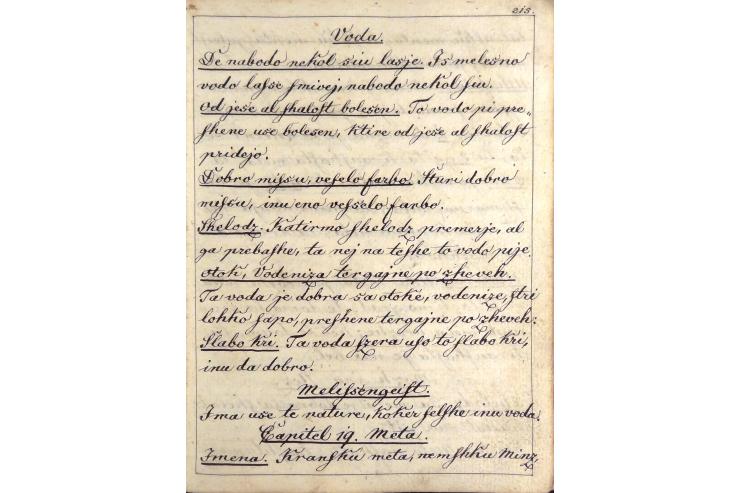 213.
Voda.
De nabodo nekol siu lasje. Is melesno
vodo lasse smivej, nabodo nekol siu.
Od jese al shalost bolesen. To vodo pi pre„
shene use bolesen, ktire od jese al shalost
pridejo.
Dobro missu, veselo farbo. Sturi dobro
missu, inu eno vesselo farbo.
Shelodz. Katirmo shelodz premerje, al
ga prebashe, ta nej na teshe to vodo pije.
otok, Vodeniza tergajne po zheveh.
Ta voda je dobra sa otoke, vodenize, stri
lohko sapo, preshene tergajne po zheveh:
Slabo kri. Ta voda szera uso to slabo kri,
inu da dobro.
Melissengeist.
Ima use te nature, koker selshe inu voda.
Capitel 19. Meta.
Imena. Kranshku meta, nemshku Minz,